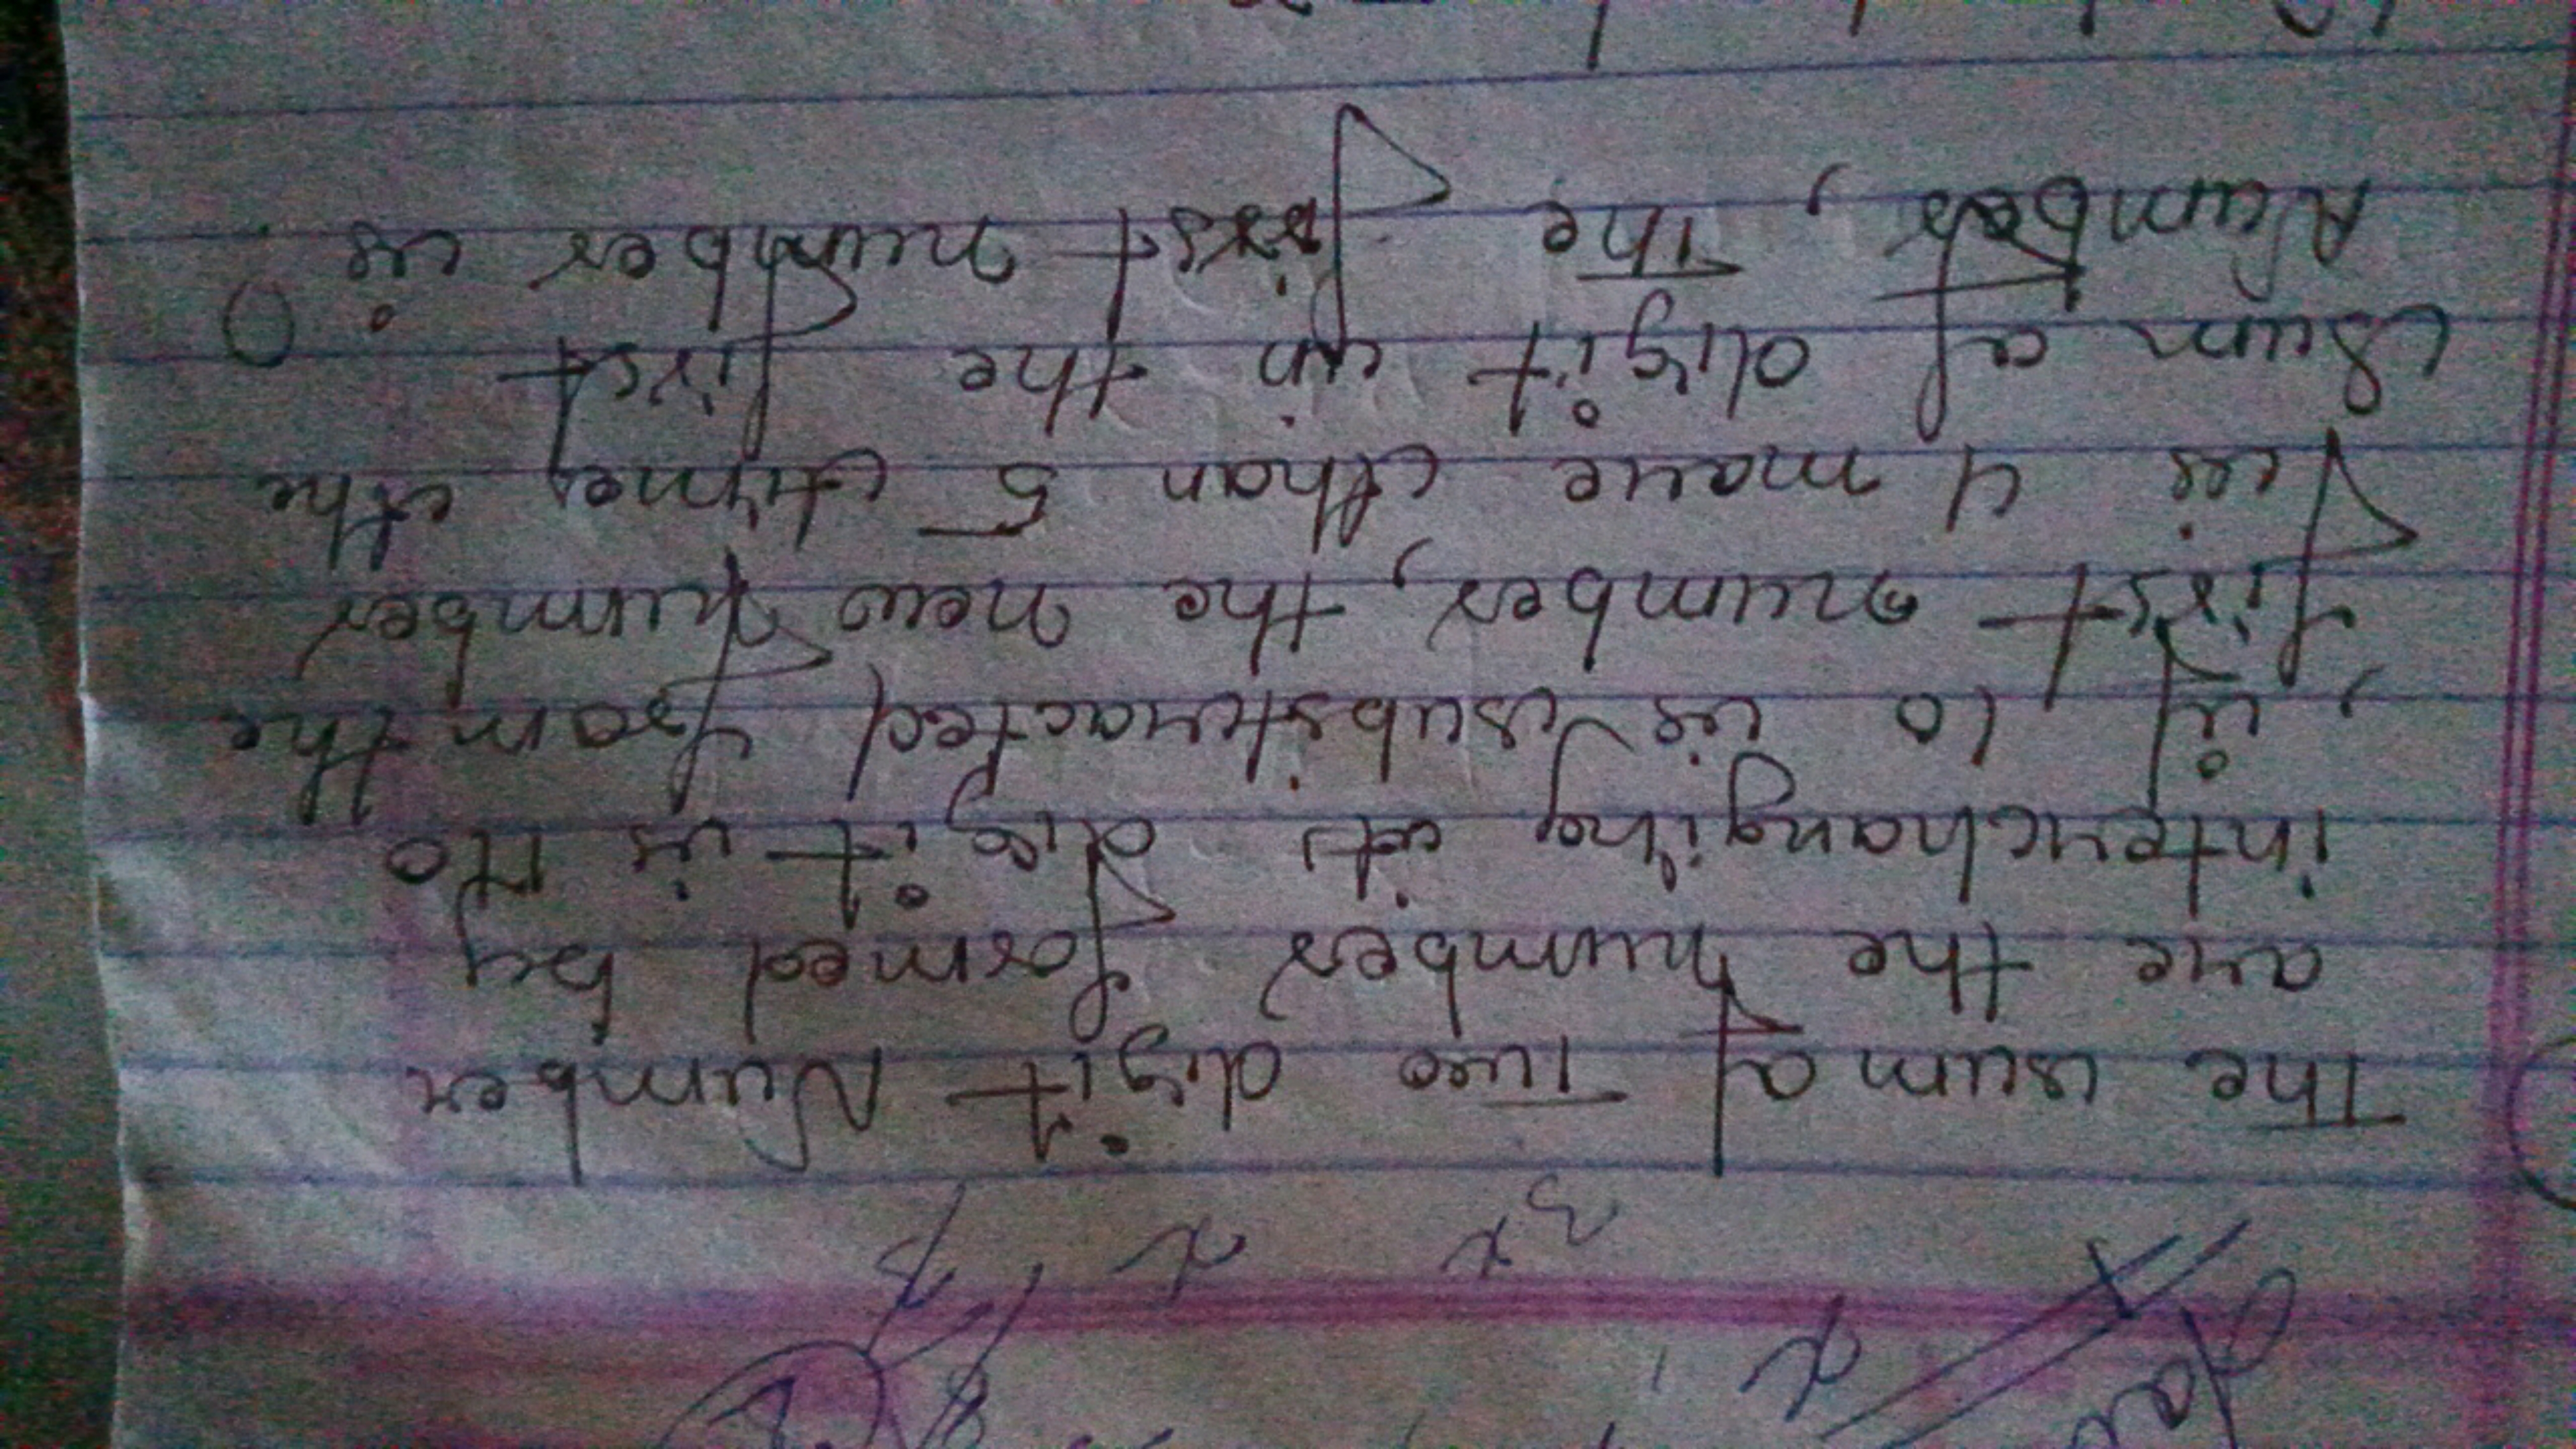 The sum of Two digit Number
are the number formed by
interchanging its digit is 110
, if 10 is substracted from the
first number, the new number
is 4 more than 5 time, the
sum of digit in the first
Number, The first number is